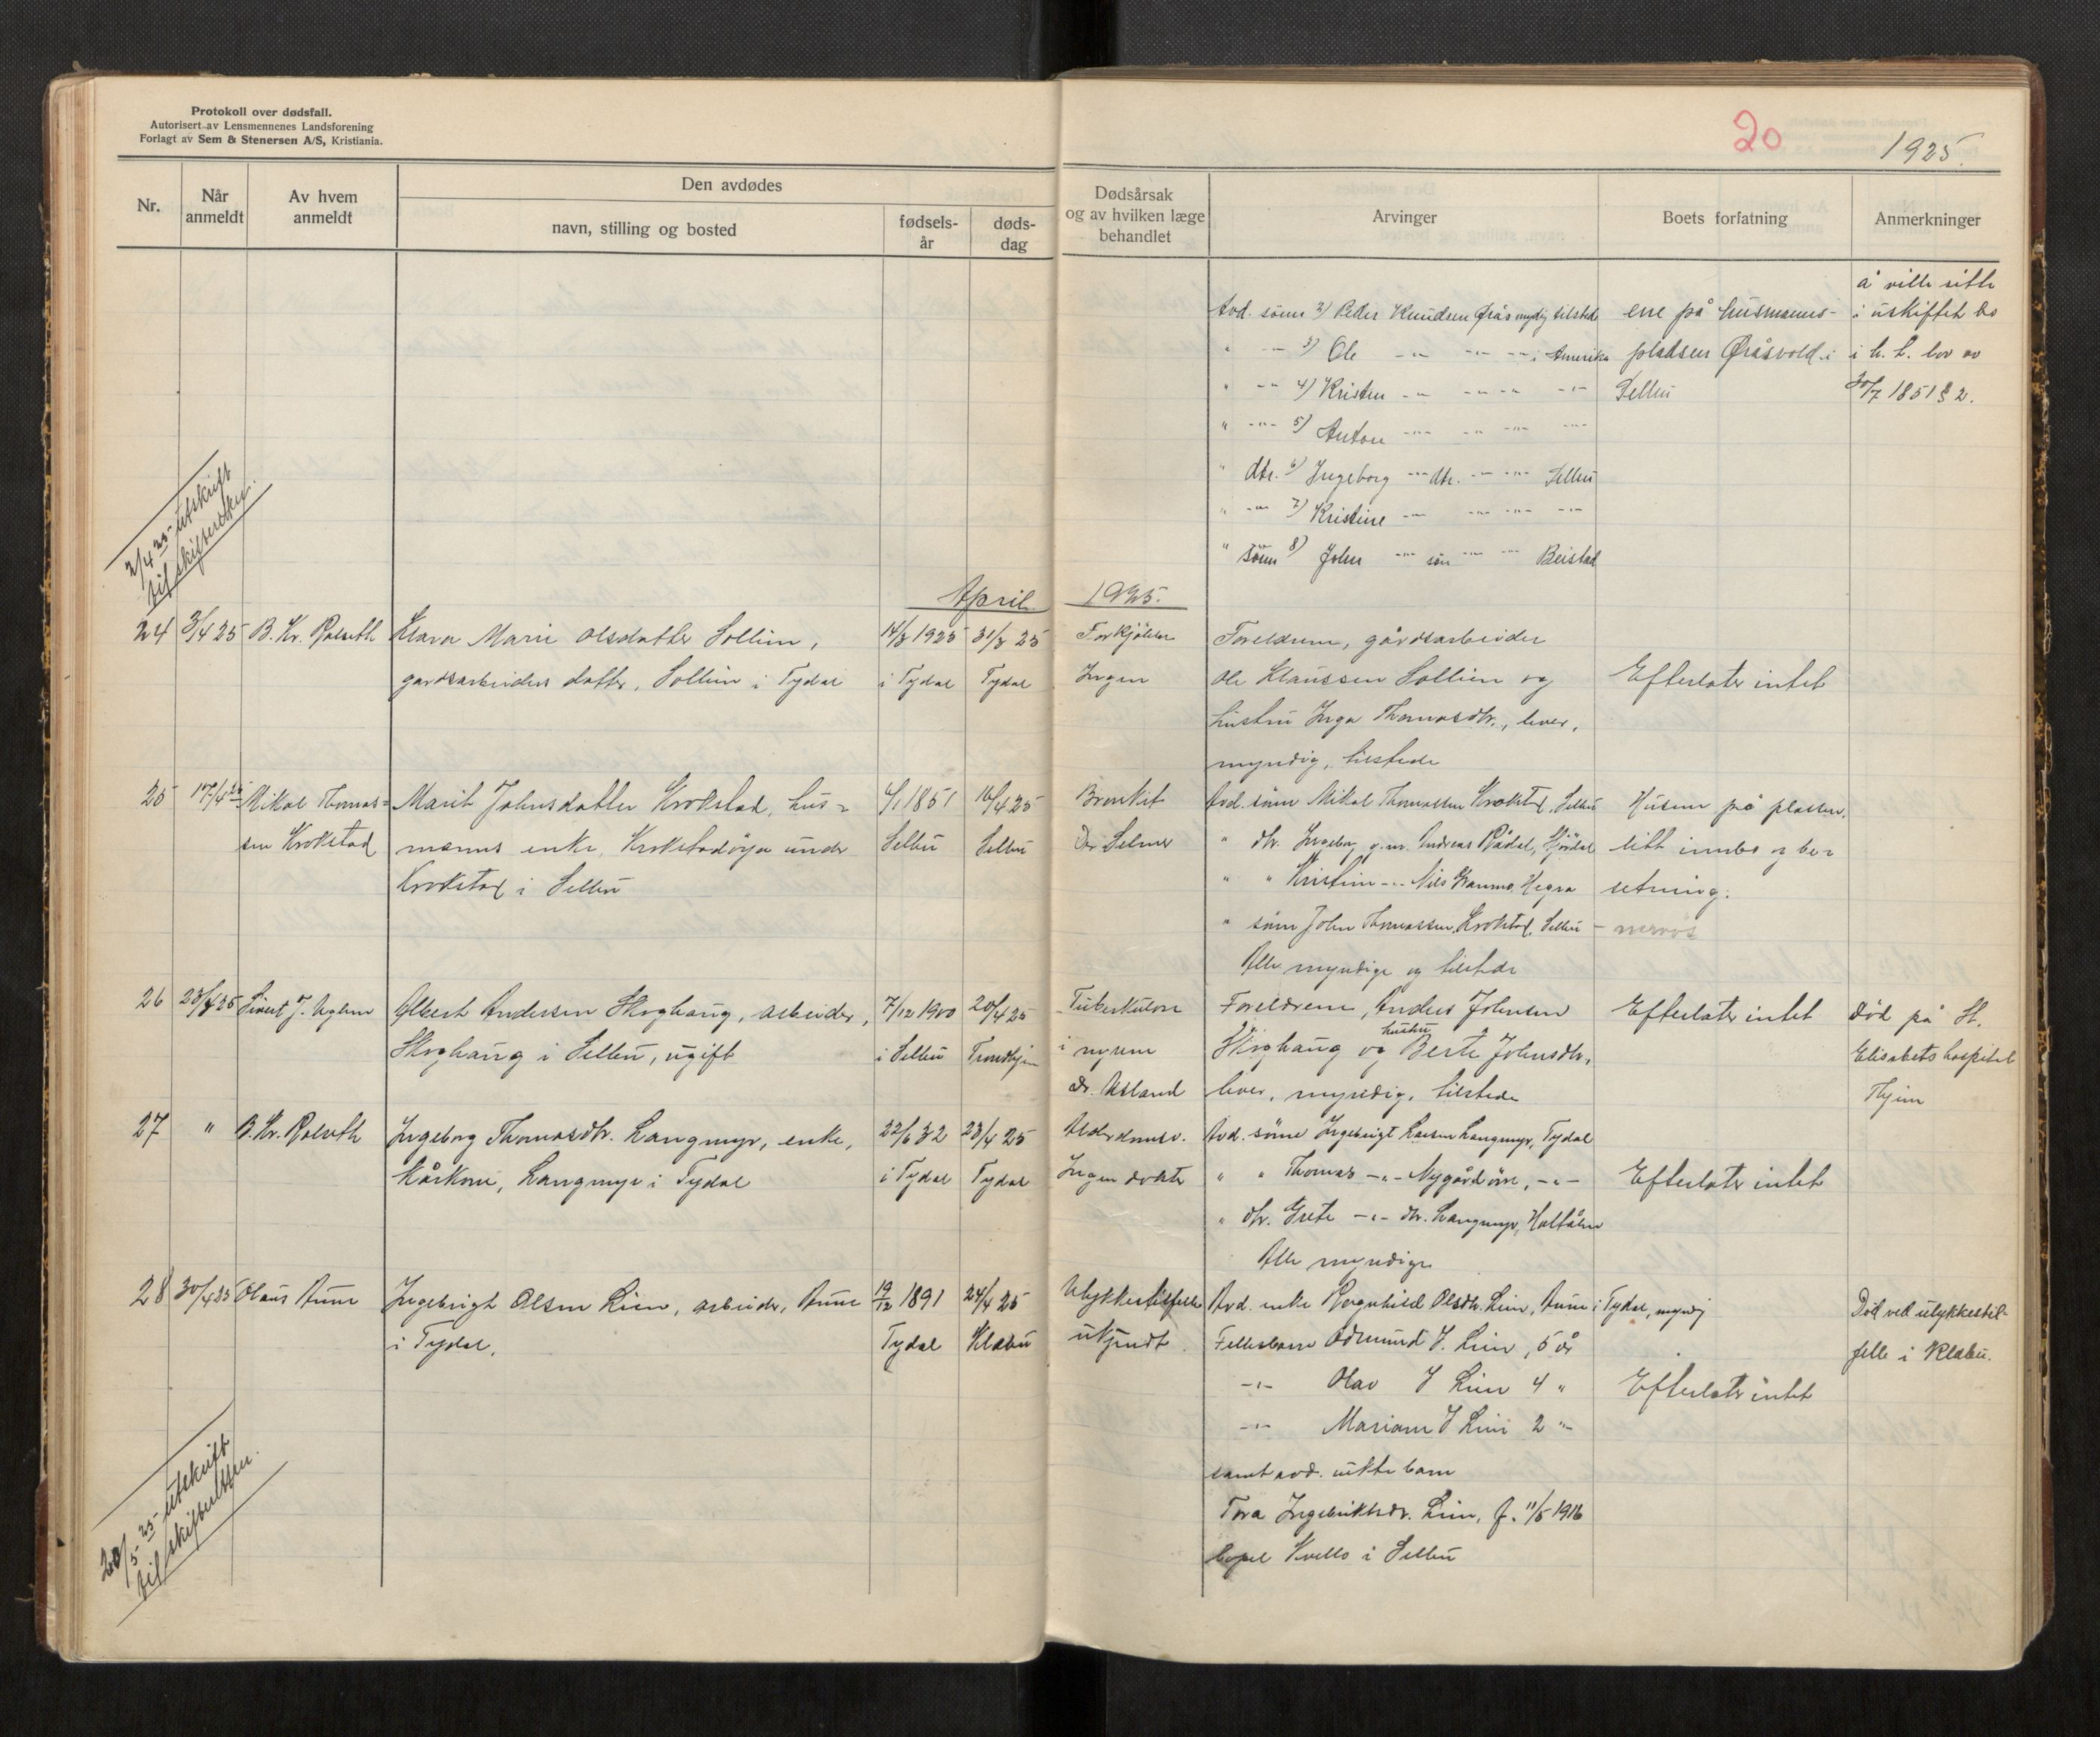 Protokoll over dødsfall.
Autorisert av Lensmennenes Landsforening
Forlagt av Sem & Stenersen A/S, Kristiania.
20
1925.
Nr.
Når anmeldt
Av hvem anmeldt
Den avdødes
navn, stilling og bosted
fødsels-år
døds-dag
Dødsårsak og av hvilken læge behandlet
Arvinger
Boets forfatning
Anmerkninger
Avd. sönn 2) Peder Knudsen Øråsmyndig tilstede
" -"- 3) Ole -"- -"- -"- i Amerika
" -"- 4) Kristen -"- -"- -"- -"-
" -"- 5) Anton -"- -"- -"- -"-
" dtr. 6) Ingeborg -"- dtr. -"- -"- Selbu
" -"- 7) Kristine -"- -"- -"- -"-
" sönn 8) John -"- sön -"- -"- Beistad
ene på husmanns-
pladsen Øråsvold i
Selbu
å ville sitte
i uskiftet bo
i h. t. lov av
30/7 1851 § 2.
2/4 25 utskrift
til skifteretten.
April 1925.
24
3/4 25
B. Kr. Rolseth
Klara Marie Olsdatter Sollien,
gardsarbeiders datter, Sollien i Tydal
14/3 1925
i Tydal
31/3 25
Tydal
Forkjölelse
Ingen
Foreldrene, gårdsarbeider
Ole Klaussen Sollien og
hustru Inga Thomasdtr., lever,
myndig, tilstede
Efterlater intet
25
17/4 25
Mikal Thomas-
sen Krokstad
Marit Johnsdatter Krokstad, hus-
manns enke, Krokstadöya under
Krokstad i Selbu
4/1 1851
Selbu
16/4 25
Selbu
Bronkit
Dr Selmer
Avd. sönn Mikal Thomassen Krokstad, Selbu
" dtr. Ingeborg, g.m. Andreas Rådal, Stjørdal
" " Kristine -"- Nils Gamme, Hegra
" sönn John Thomassen Krokstad, Selbu - nervös
Alle myndige og tilstede
Husene på plassen,
litt innbo og be-
setning.
26
23/4 25
Sivert J. Uglem
Albert Andersen Skoghaug, arbeider,
Skoghaug i Selbu, ugift
7/12 1900
i Selbu
20/4 25
Trondhjem
Tuberkulose
i nyrene
dr. Utland
Foreldrene, Anders Johnsen
Skoghaug og hustru Berte Johnsdtr.,
lever, myndig, tilstede
Efterlater intet
Död på St.
Elisabets hospital
Thjem
27
"
B. Kr. Rolseth
Ingeborg Thomasdtr. Langmyr, enke,
kårkone, Langmyr i Tydal
22/6 32
i Tydal
23/4 25
Tydal
Alderdomsv.
Ingen doktor
Avd. sönn Ingebrigt Larsen Langmyr, Tydal
" " Thomas -"- Nygårdöra, -"-
" dtr. Grete -"- dtr. Langmyr, Holtålen
Alle myndige
Efterlater intet
28
30/4 25
Olaus Aune
Ingebrigt Olsen Lien, arbeider, Aune
i Tydal.
19/12 1891
Tydal
24/4 25
Klæbu
Ulykkestilfelle
ukjendt.
Avd. enke Ragnhild Olsdtr. Lien, Aune i Tydal, myndig
Fellesbarn Odmund I. Lien, 5 år
-"- Olav I Lien 4 "
-"- Mariam I Lien 2 "-
samt avd. uekte barn
Tora Ingebriktsdr. Lien, f. 11/5 1916
bopel Kvello i Selbu
Efterlater intet
Död ved ulykkestil-
felle i Klæbu.
20/5 25 utskrift
til skifteretten.